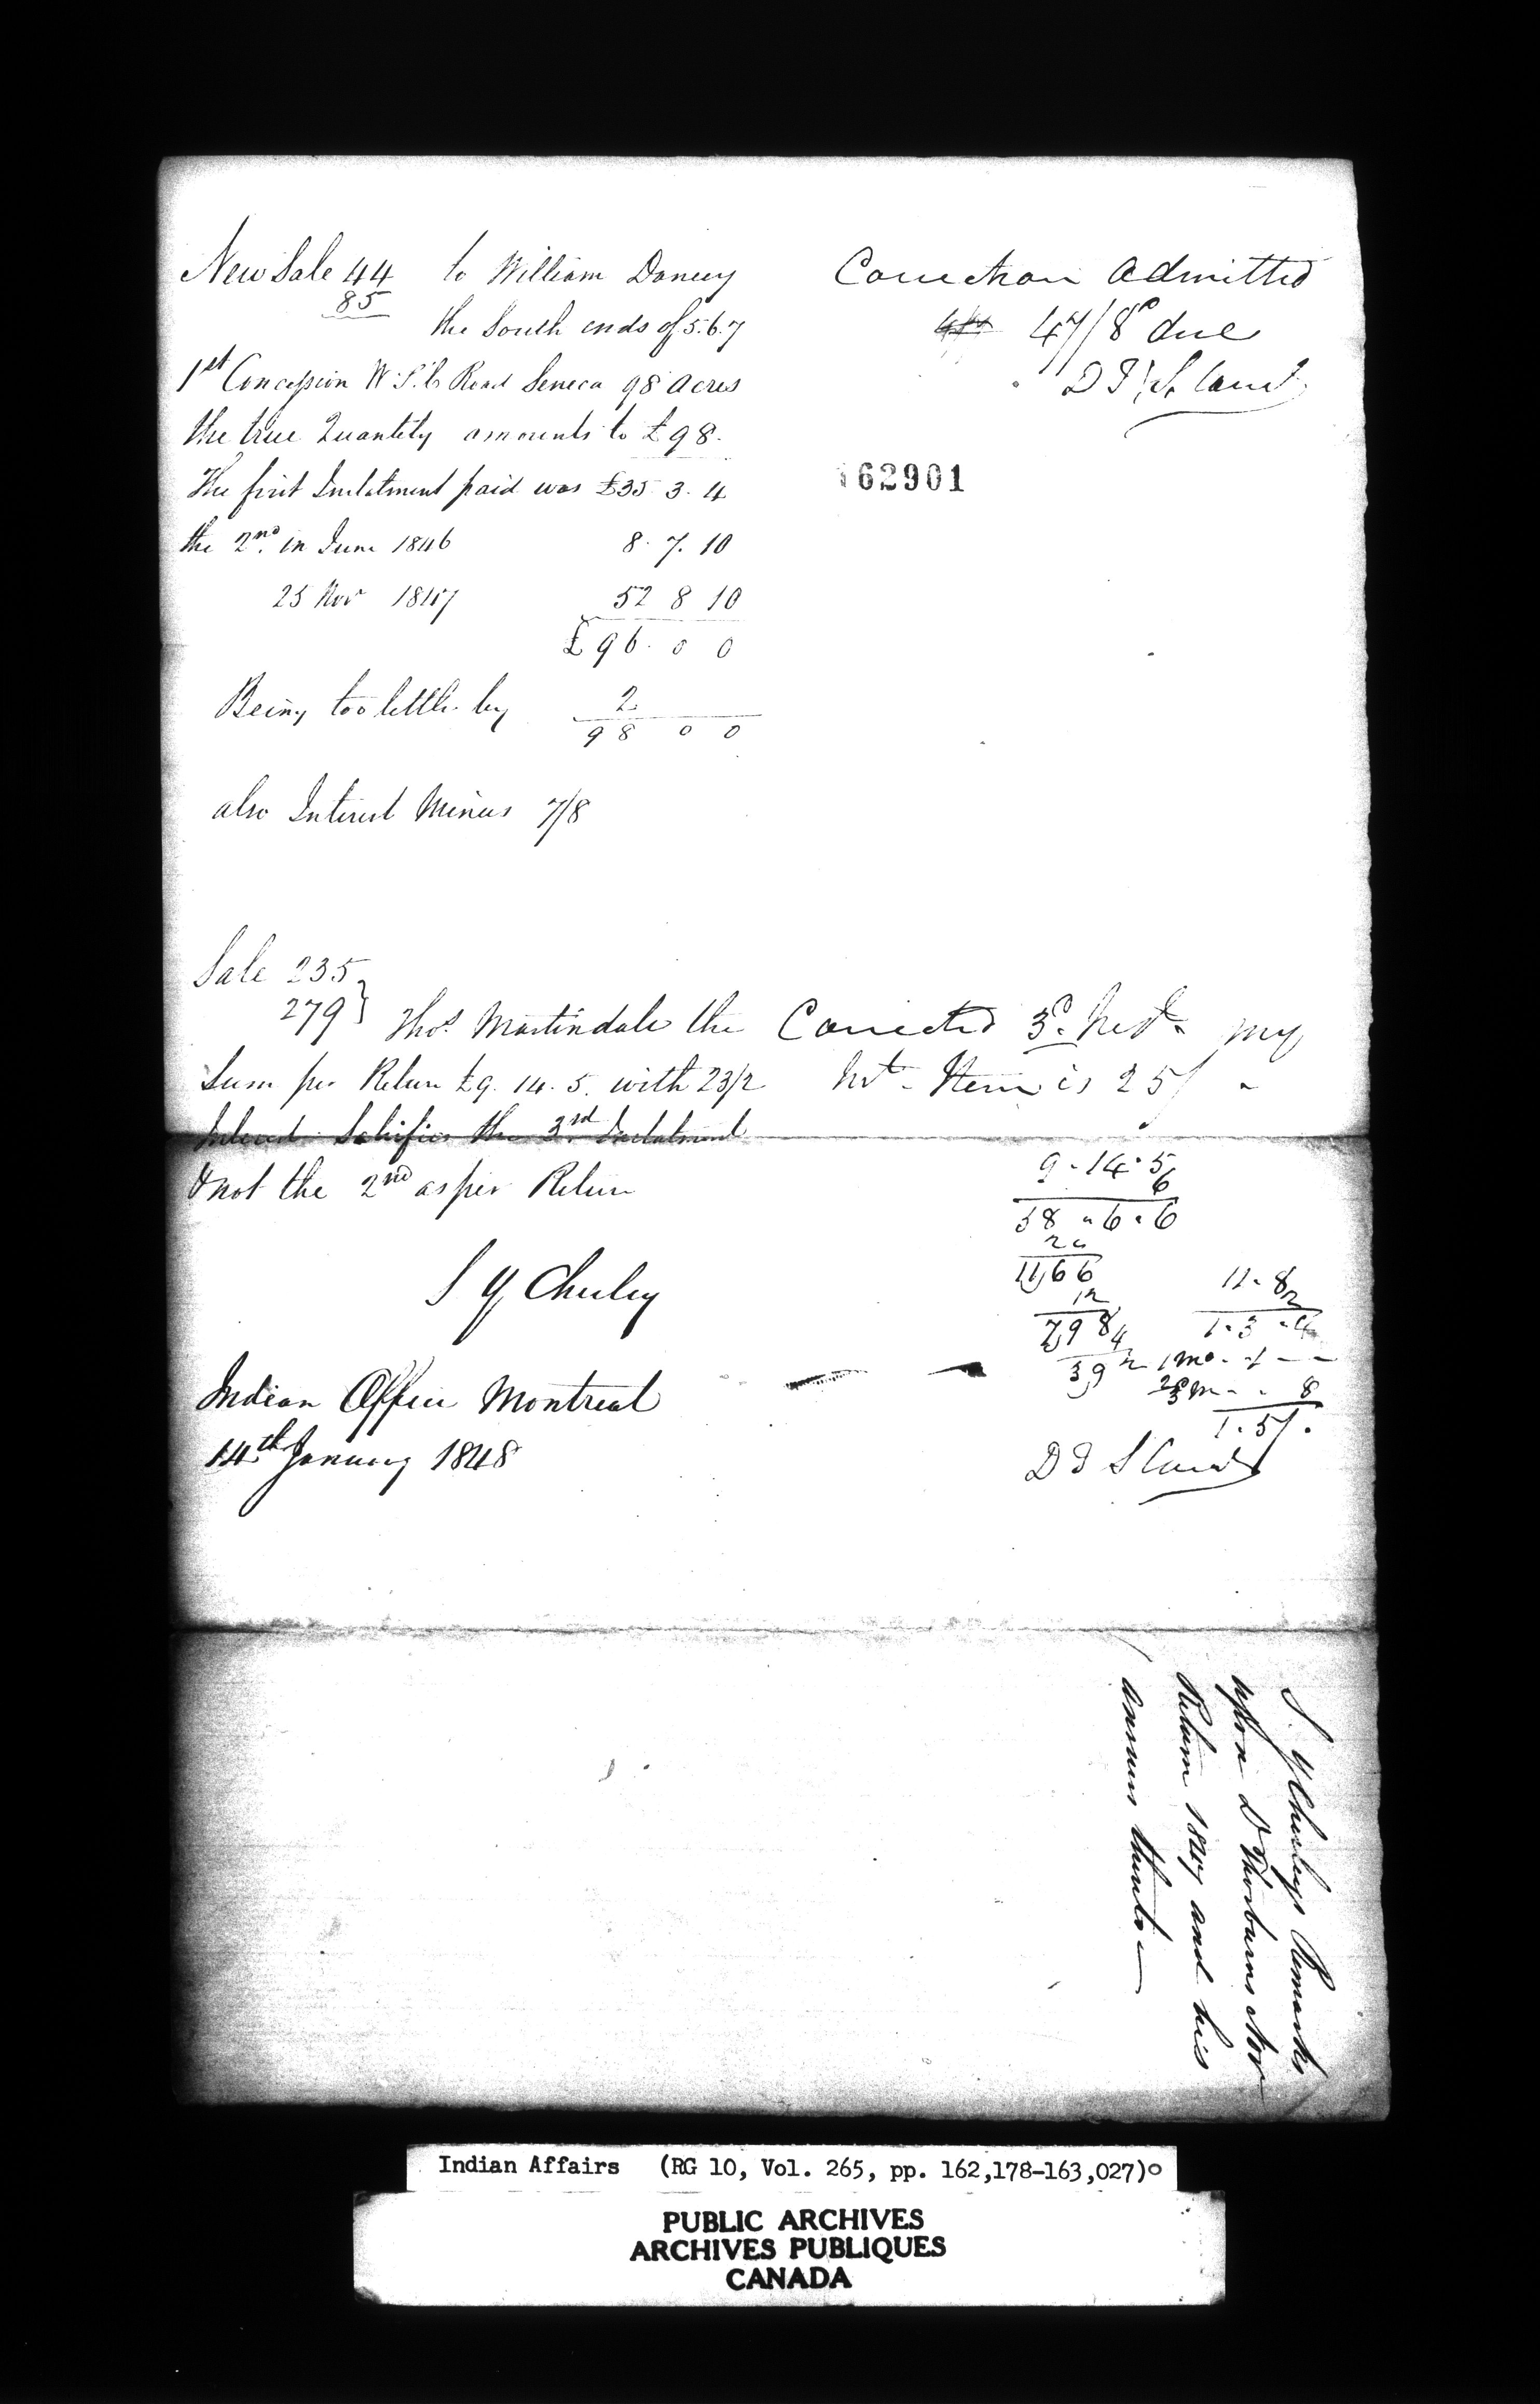 New Sale 44 to William Dancey
85
the South ends of 5. 6. 7
1st Concession W. P. Road Seneca 98 Acres
the true Quantity amounts to £98.
The first Instalment paid was £35. 3. 4
the 2nd. in June 1846 8. 7. 10
25 Nov 1847 52 8 10
£96. 0 0
Being too little by 2
98 0 0
also Interest Minus 7/8
Correction Admitted
47/8d due
162901
Sale 235
279 } Thos Martindale the
Sum per Return £9. 14. 5. with 23/2
Interest Satisfies the 3rd Instalment
& not the 2nd as per Return
S Y Chesley
Indian Office Montreal
14th January 1848
Corrected 3d. Inst. my
Int. Item is 25/
9. 14. 5
6
58. 6. 6
20
11,66
12
7,98
4
3,92
11. 8
2
1. 3. 4
1 mo. 1 - -
8
1. 5/.
S. Y Chesleys Remarks
upon D Thorburns Nov
Return 1847 and his
answers thereto —
Indian Affairs (RG 10, Vol. 265, pp. 162,178-163,027)
PUBLIC ARCHIVES
ARCHIVES PUBLIQUES
CANADA